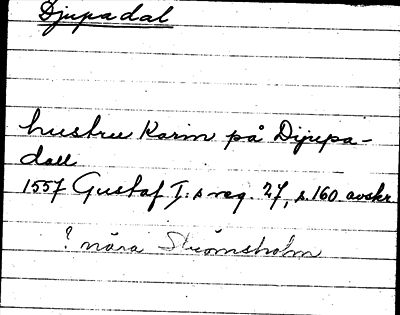 Djupadal
hustru Karin på Dijupa-
dall
1557 Gustaf I:s reg. 27, s.160 avskr.
? nära Strömsholm